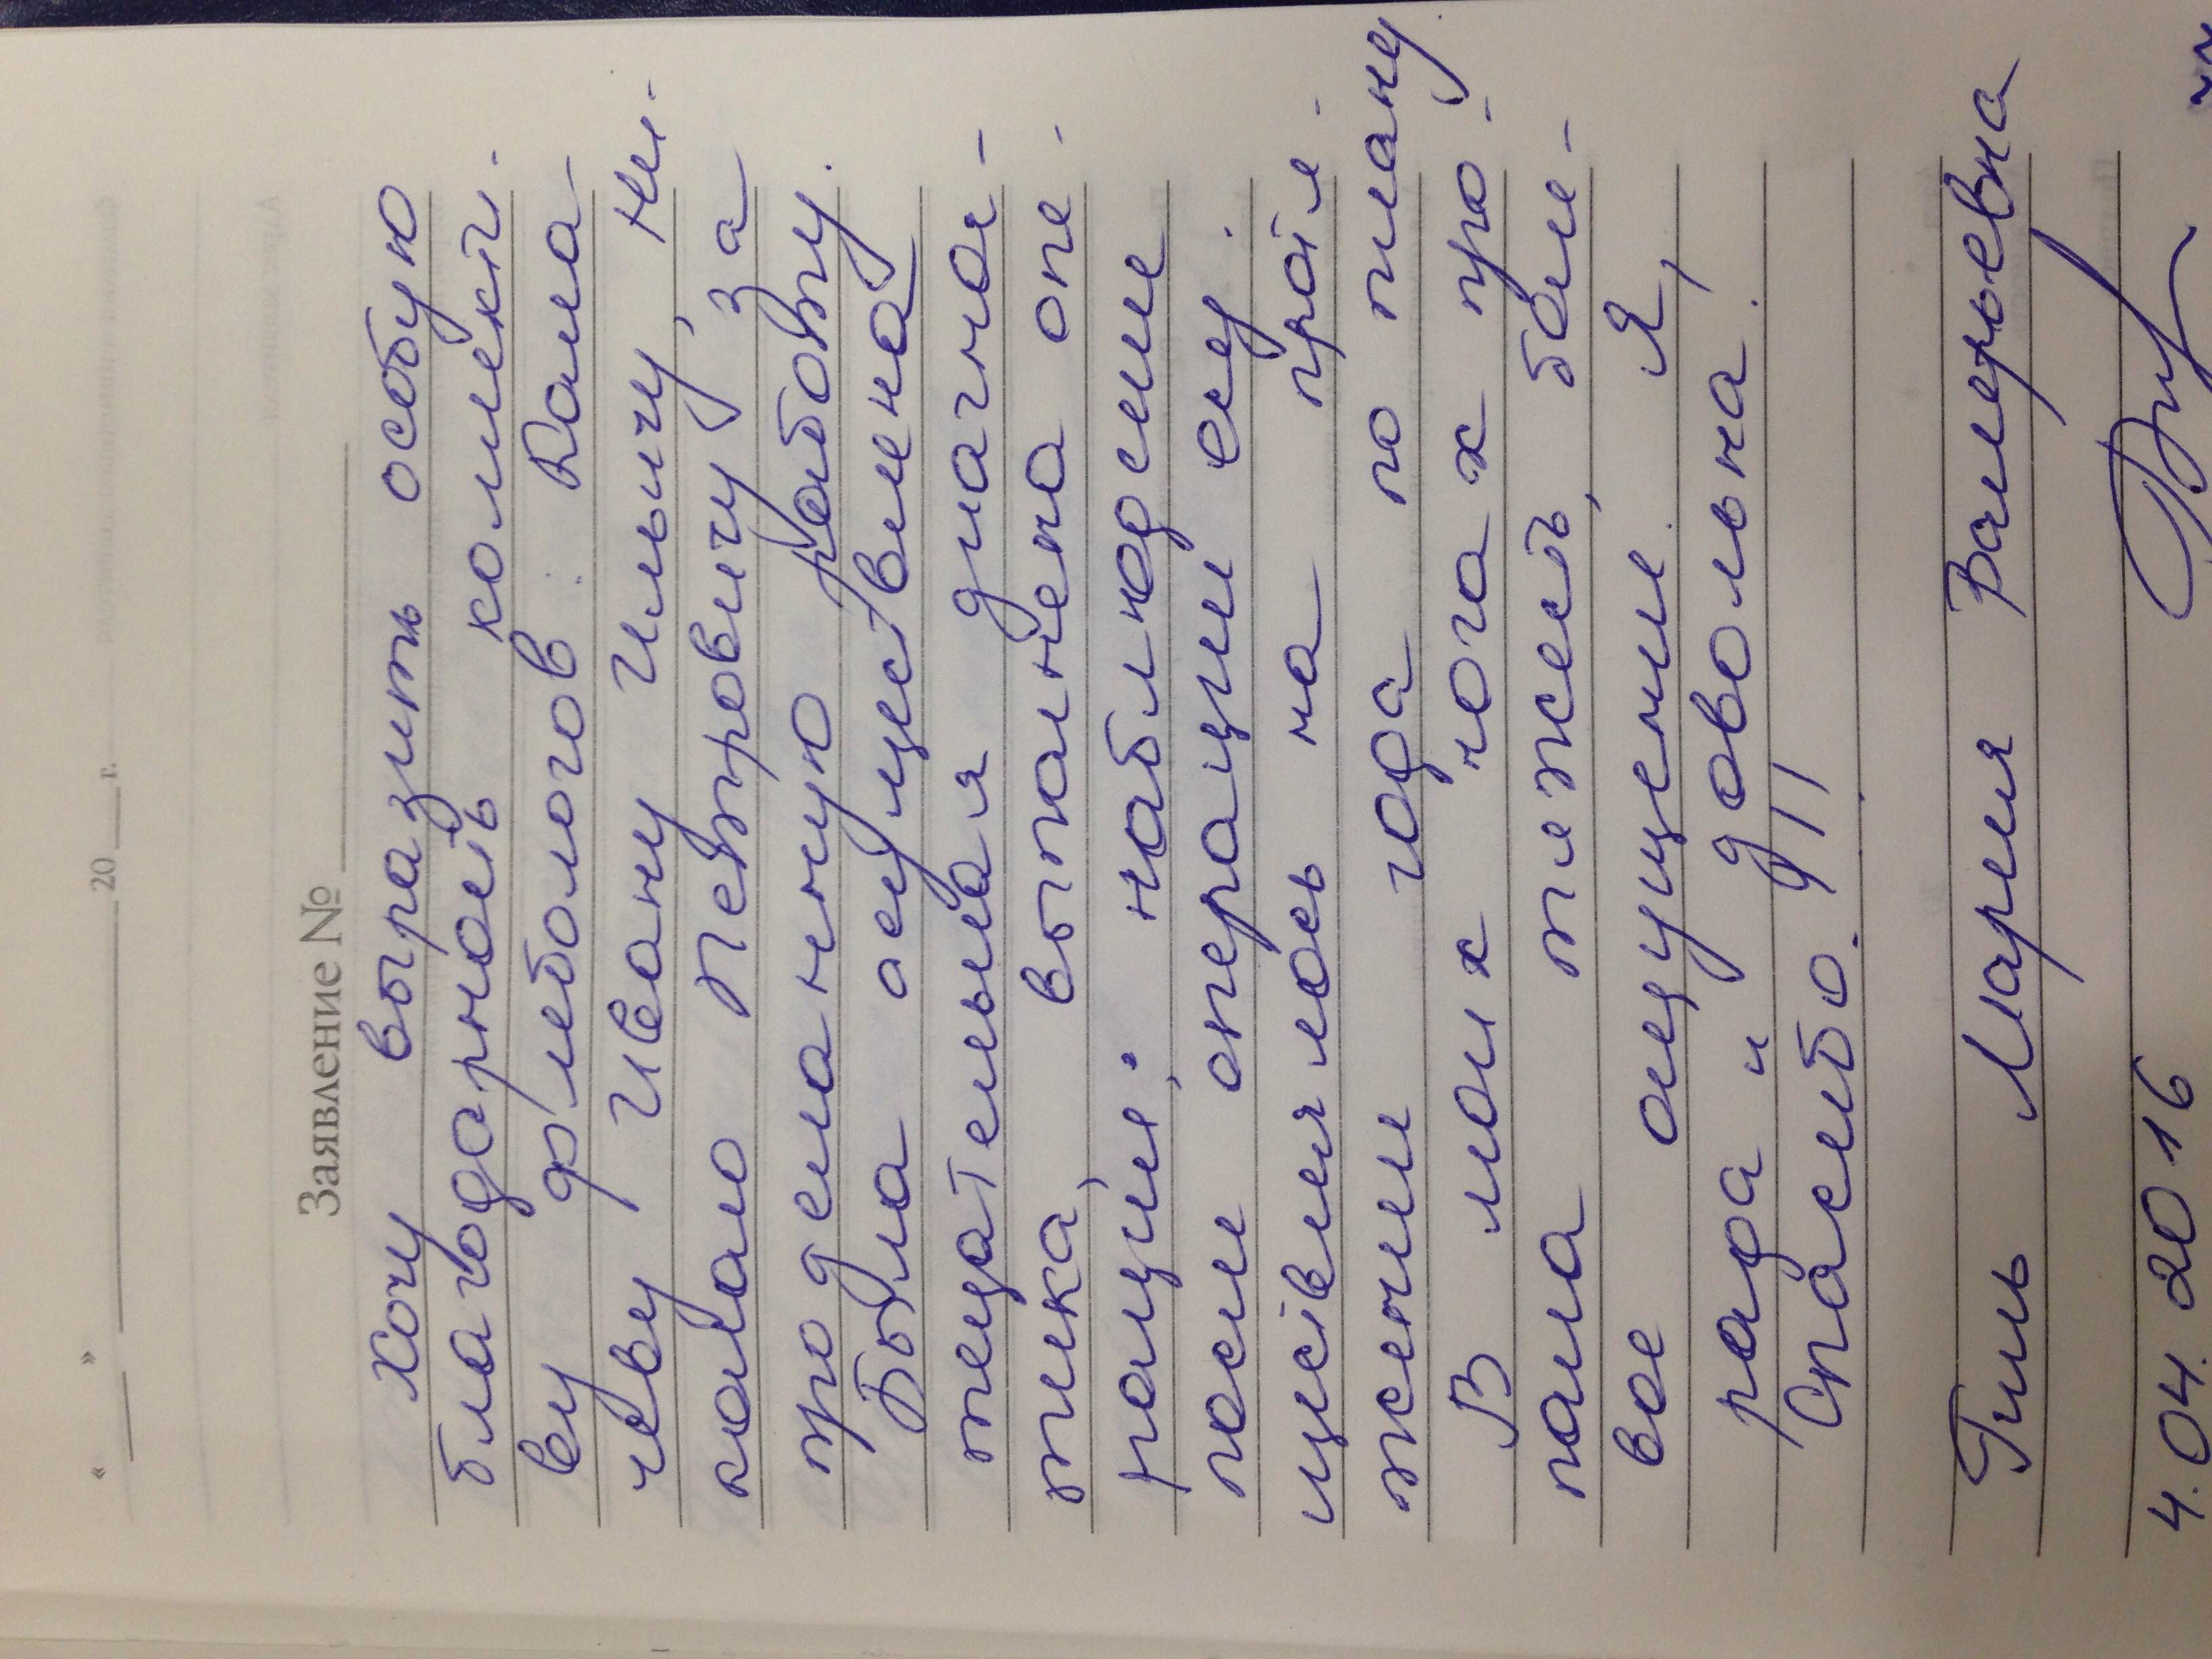 « ____ » ____________ 20 ___ г.
Заявление № ____________
Хочу выразить особую
благодарность коллекти-
ву флебологов: Кала-
чеву Ивану Ильичу, Ни-
колаю Петровичу за
проделанную работу.
Была осуществлена
тщательная диагнос-
тика, выполнена опе-
рация; наблюдение
после операции осу-
ществлялось на протя-
жении года по плану.
В моих ногах про-
пала тяжесть, боле-
вое ощущение. Я,
рада и довольна!
Спасибо!!!
Гиль Мария Валерьевна
4.04.2016